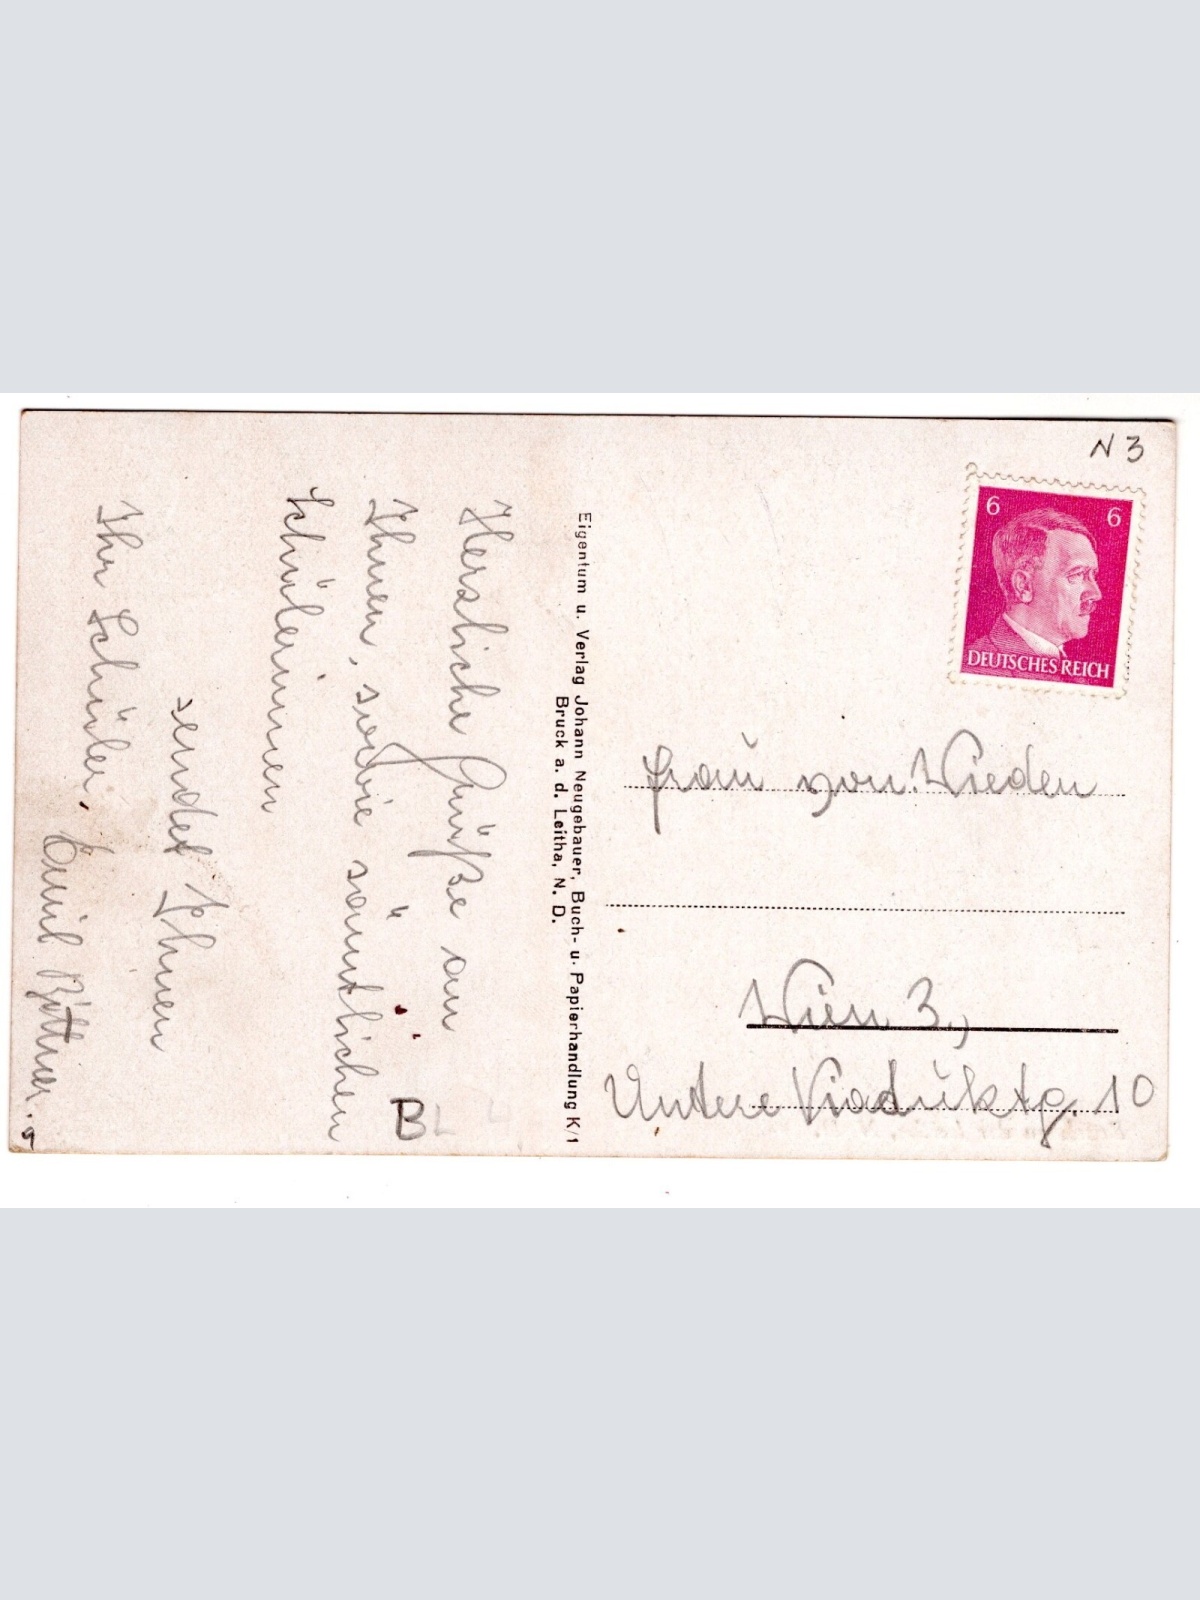 Herzliche Grüße an
Ihnen, sowie sämtlichen
Schülerinnen
sendet Ihnen
Ihr Schüler.
Emil Büttner.
9
Eigentum u. Verlag Johann Neugebauer, Buch- u. Papierhandlung K/1
Bruck a. d. Leitha, N. D.
BL
N 3
6 6
DEUTSCHES REICH
Frau von Wieden
Wien 3.,
Untere Viaduktg. 10